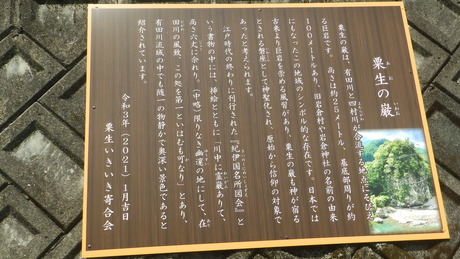 粟生の巌
あお
いわお
粟生の巌は、有田川と四村川が合流する地点にそびえ
る巨岩です。高さは約25メートル、基底部周りが約
100メートルあり、旧岩倉村や岩倉神社の名前の由来
にもなったこの地域のシンボル的な存在です。日本では
古来より巨岩を崇める風習があり、粟生の巌も神が宿る
とされる磐座として神格化され、原始から信仰の対象で
あったと考えられます。
江戸時代の終わりに刊行された『紀伊国名所図会』と
いう書物の中には、挿絵とともに「川中に霊巌ありて、
高さ六丈に余れり。(中略)限りなき幽邃の地にして、在
田川の風致、この処を第一といはむも可なり」とあり、
有田川流域の中でも随一の物静かで奥深い景色であると
紹介されています。
令和3年(2021)1月吉日
粟生いきいき寄合会